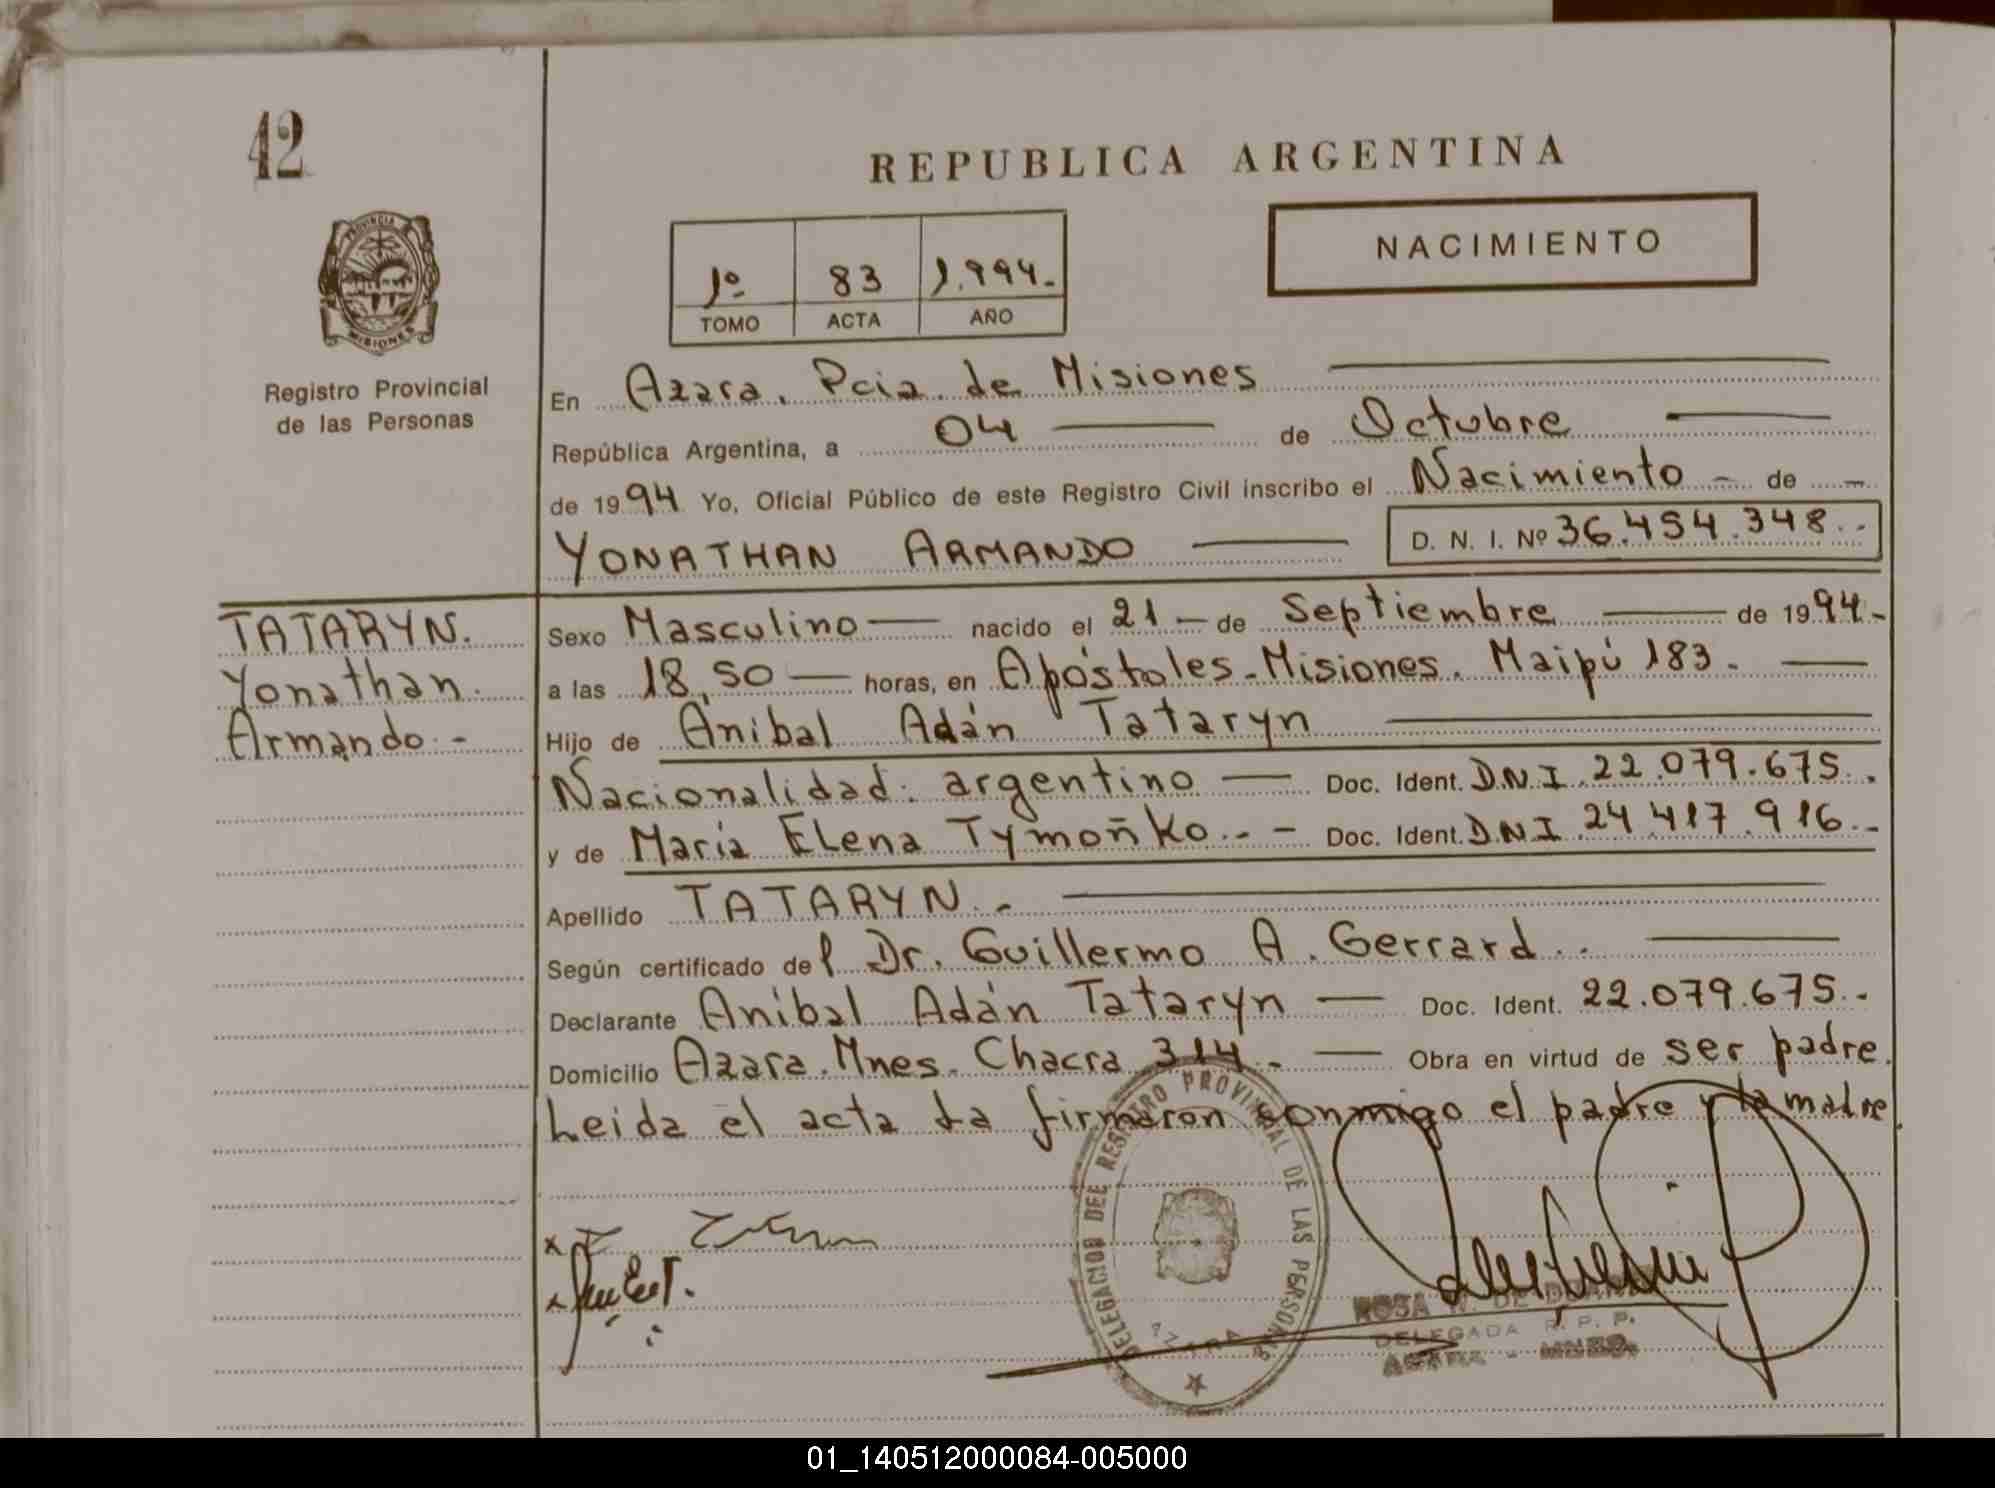 42
REPUBLICA ARGENTINA
NACIMIENTO
1º 83 1.994.-
TOMO ACTA AÑO
PROVINCIA
MISIONES
Registro Provincial
de las Personas
En Azara. Pcia. de Misiones
República Argentina, a 04 de Octubre
de 1994 Yo, Oficial Público de este Registro Civil inscribo el Nacimiento - de -
YONATHAN ARMANDO D. N. I. Nº 36.454.348.-
TATARYN.
Yonathan.
Armando.-
Sexo Masculino nacido el 21 - de Septiembre de 1994.-
a las 18,50 horas, en Apóstoles-Misiones. Maipú 183.
Hijo de Aníbal Adán Tataryn
Nacionalidad: argentino Doc. Ident. D.N.I. 22.079.675.
y de María Elena Tymoñko.- - Doc. Ident. D.N.I 24 417 916.-
Apellido TATARYN.-
Según certificado del Dr. Guillermo A. Gerrard.
Declarante Aníbal Adán Tataryn Doc. Ident. 22.079.675.-
Domicilio Azara.Mnes. Chacra 314.- Obra en virtud de ser padre.
Leida el acta la firmaron conmigo el padre y la madre.
DELEGACION DEL REGISTRO PROVINCIAL DE LAS PERSONAS
AZARA
ROSA N. DE
DELEGADA R. P. P.
AZARA - MNES.
01_140512000084-005000